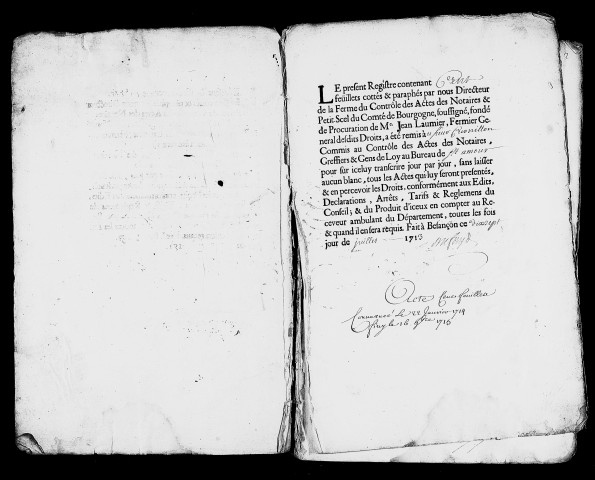 LE present Registre contenant Cent
feuillets cottés & paraphés par nous Directeur
de la Ferme du Contrôle des Actes des Notaires &
Petit Scel du Comté de Bourgogne, soussigné, fondé
de Procuration de Me. Jean Laumier, Fermier Ge-
neral desdits Droits, a été remis à
Commis au Contrôle des Actes des Notaires,
Greffiers & Gens de Loy au Bureau de St amour
pour sur iceluy transcrire jour par jour, sans laisser
aucun blanc, tous les Actes qui luy seront presentés,
& en percevoir les Droits, conformément aux Edits,
Declarations, Arrêts, Tarifs & Reglemens du
Conseil; & du Produit d'iceux en compter au Re-
ceveur ambulant du Département, toutes les fois
& quand il en sera requis. Fait à Besançon ce dixsept
jour de juillet 1713
Acte
Commancé Le 22 Janvier 1714
finy le 16 9bre 1716